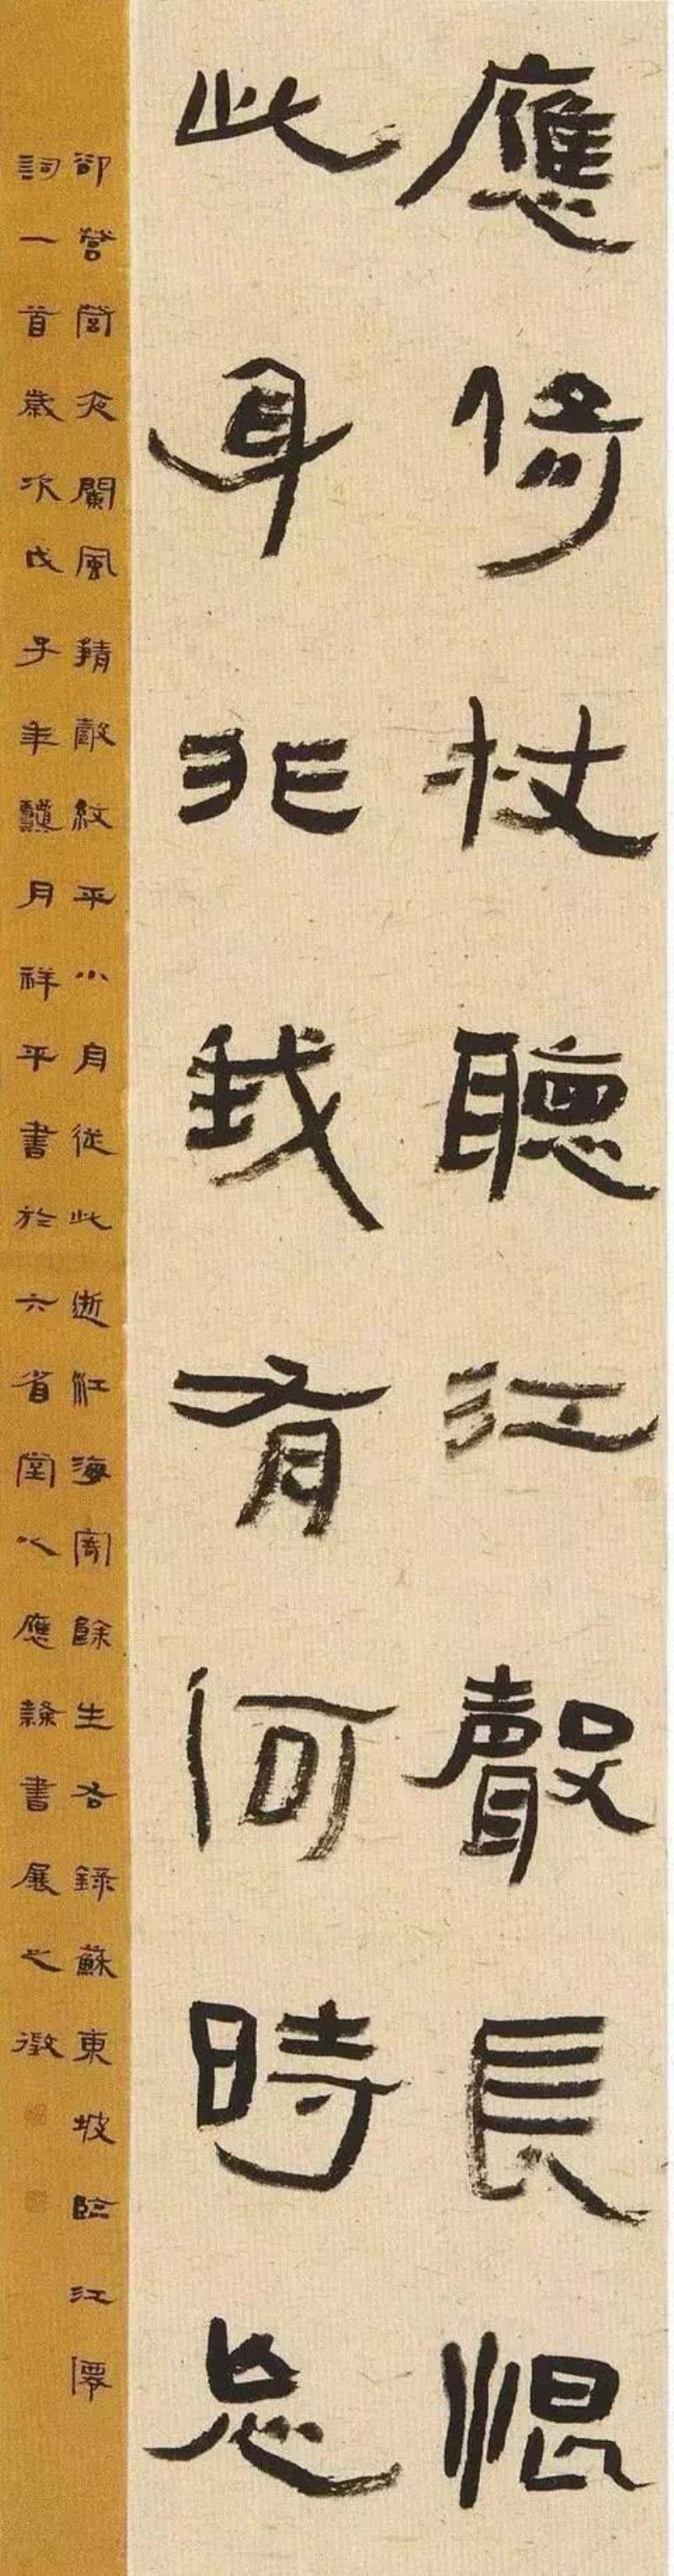 應倚杖聽江聲長恨
此身非我有何時忘
卻營營夜闌風靜縠紋平小舟從此逝江海寄餘生右錄蘇東坡臨江僊
詞一首歲次戊子年月祥平書於六省堂以應隸書展之徵